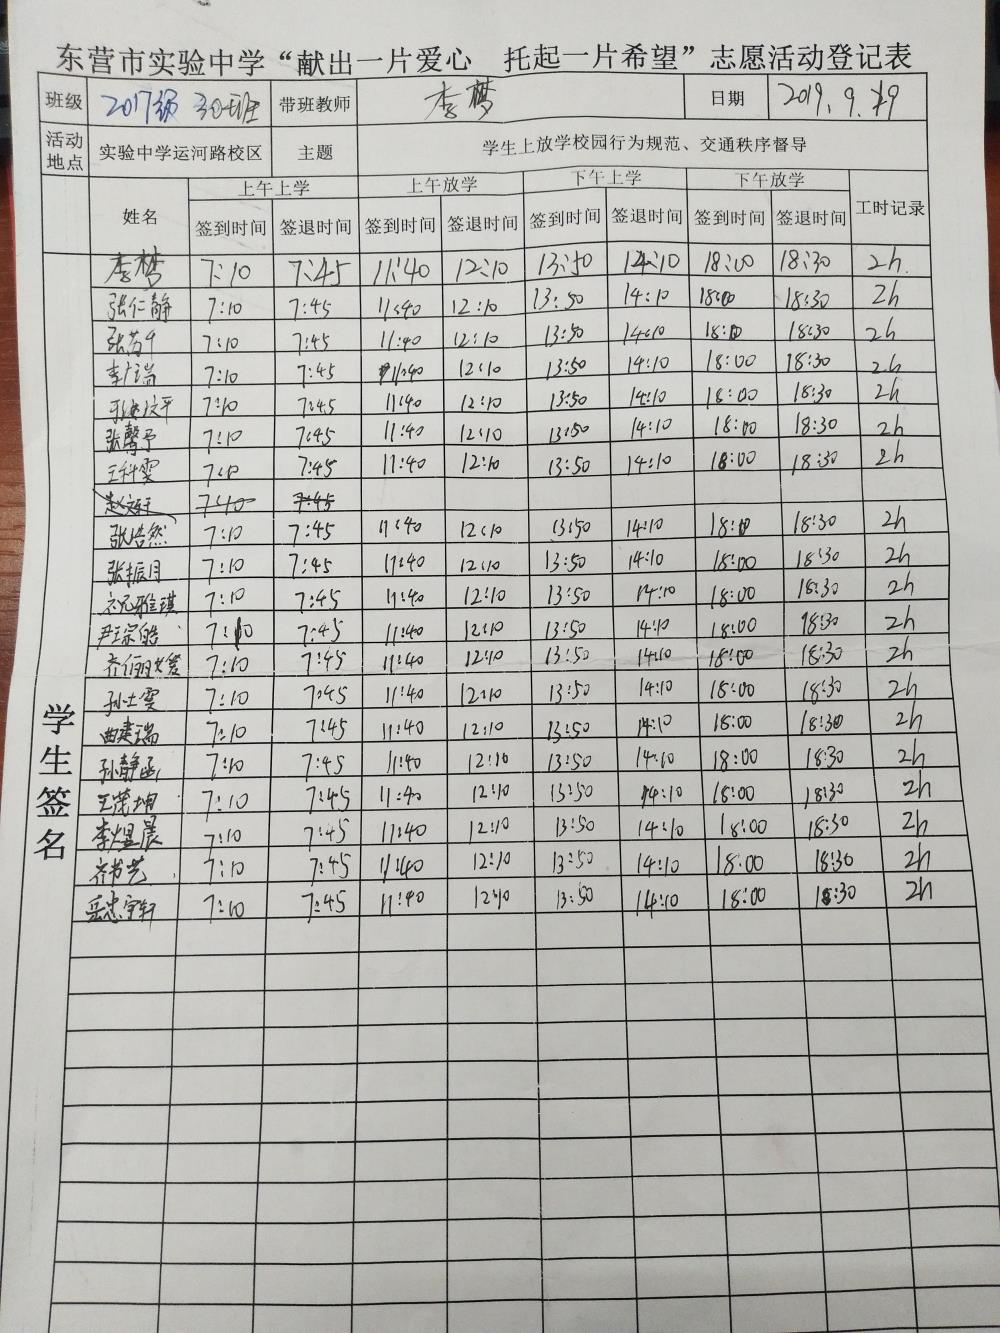 东营市实验中学“献出一片爱心 托起一片希望”志愿活动登记表
班级 2017级 30班 带班教师 李梦 日期 2019.9.19
活动地点 实验中学运河路校区 主题 学生上放学校园行为规范、交通秩序督导
姓名 上午上学 上午放学 下午上学 下午放学 工时记录
签到时间 签退时间 签到时间 签退时间 签到时间 签退时间 签到时间 签退时间
学生签名
李梦 7:10 7:45 11:40 12:10 13:50 14:10 18:00 18:30 2h.
张仁静 7:10 7:45 11:40 12:10 13:50 14:10 18:00 18:30 2h
张若千 7:10 7:45 11:40 12:10 13:50 14:10 18:00 18:30 2h
李广瑞 7:10 7:45 11:40 12:10 13:50 14:10 18:00 18:30 2h
7:10 7:45 11:40 12:10 13:50 14:10 18:00 18:30 2h
张馨予 7:10 7:45 11:40 12:10 13:50 14:10 18:00 18:30 2h
王科雯 7:10 7:45 11:40 12:10 13:50 14:10 18:00 18:30 2h
7:10 7:45
张浩然 7:10 7:45 11:40 12:10 13:50 14:10 18:00 18:30 2h
张振月 7:10 7:45 11:40 12:10 13:50 14:10 18:00 18:30 2h
7:10 7:45 11:40 12:10 13:50 14:10 18:00 18:30 2h
尹宗皓 7:10 7:45 11:40 12:10 13:50 14:10 18:00 18:30 2h
7:10 7:45 11:40 12:10 13:50 14:10 18:00 18:30 2h
孙士雯 7:10 7:45 11:40 12:10 13:50 14:10 18:00 18:30 2h
曲建瑞 7:10 7:45 11:40 12:10 13:50 14:10 18:00 18:30 2h
孙静函 7:10 7:45 11:40 12:10 13:50 14:10 18:00 18:30 2h
王茂坤 7:10 7:45 11:40 12:10 13:50 14:10 18:00 18:30 2h
李煜晨 7:10 7:45 11:40 12:10 13:50 14:10 18:00 18:30 2h
齐书艺 7:10 7:45 11:40 12:10 13:50 14:10 18:00 18:30 2h
岳忠宇轩 7:10 7:45 11:40 12:10 13:50 14:10 18:00 18:30 2h